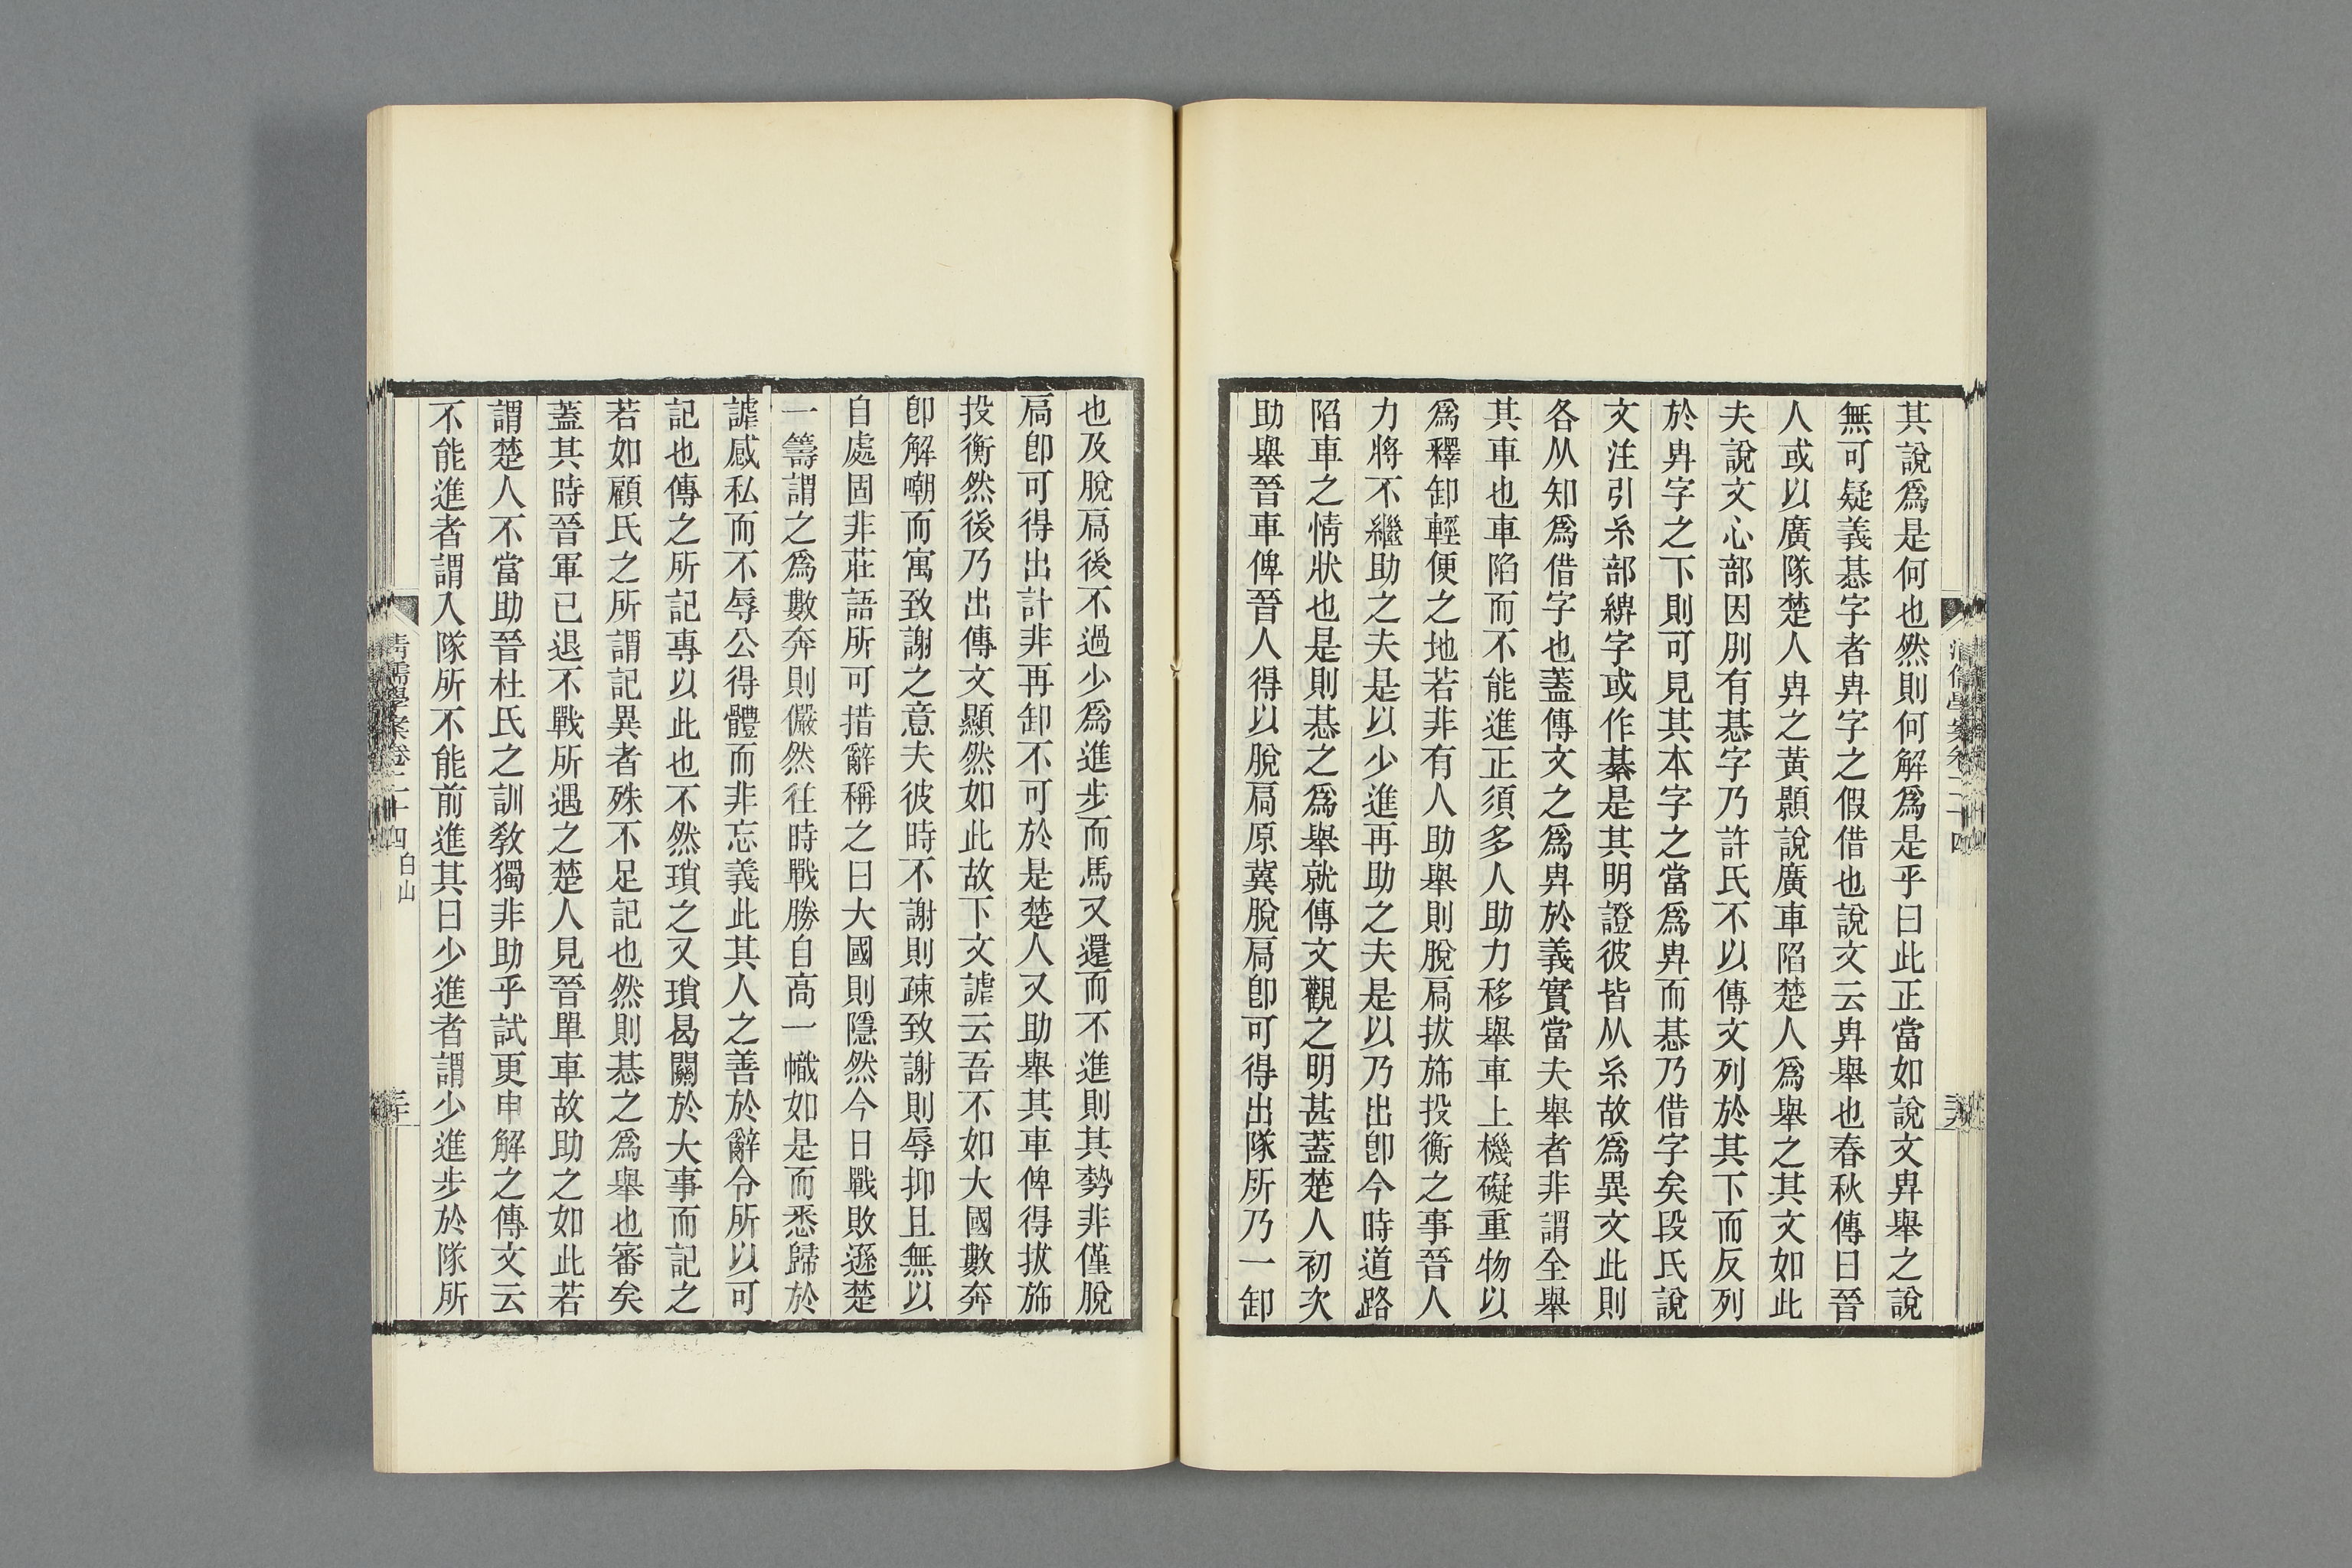 其說爲是何也然則何解爲是乎曰此正當如說文畁舉之說
無可疑義惎字者畁字之假借也說文云畁舉也春秋傳曰晉
人或以廣隊楚人畁之黃顥說廣車陷楚人爲舉之其文如此
夫說文心部因別有惎字乃許氏不以傳文列於其下而反列
於畁字之下則可見其本字之當爲畁而惎乃借字矣段氏說
文注引糸部綥字或作綦是其明證彼皆从糸故爲異文此則
各从知爲借字也蓋傳文之爲畁於義實當夫舉者非謂全舉
其車也車陷而不能進正須多人助力移舉車上機礙重物以
爲釋卸輕便之地若非有人助舉則脫扃拔旆投衡之事晉人
力將不繼助之夫是以少進再助之夫是以乃出卽今時道路
陷車之情狀也是則惎之爲舉就傳文觀之明甚蓋楚人初次
助舉晉車俾晉人得以脫扃原冀脫扃卽可得出隊所乃一卸
也及脫扃後不過少爲進步而馬又還而不進則其勢非僅脫
扃卽可得出計非再卸不可於是楚人又助舉其車俾得拔旆
投衡然後乃出傳文顯然如此故下文謔云吾不如大國數奔
卽解嘲而寓致謝之意夫彼時不謝則疎致謝則辱抑且無以
自處固非莊語所可措辭稱之曰大國則隱然今日戰敗遜楚
一籌謂之爲數奔則儼然往時戰勝自高一幟如是而悉歸於
謔感私而不辱公得體而非忘義此其人之善於辭令所以可
記也傳之所記專以此也不然瑣之又瑣曷關於大事而記之
若如顧氏之所謂記異者殊不足記也然則惎之爲舉也審矣
蓋其時晉軍已退不戰所遇之楚人見晉單車故助之如此若
謂楚人不當助晉杜氏之訓敎獨非助乎試更申解之傳文云
不能進者謂入隊所不能前進其曰少進者謂少進步於隊所
清儒學案卷二十四
白山